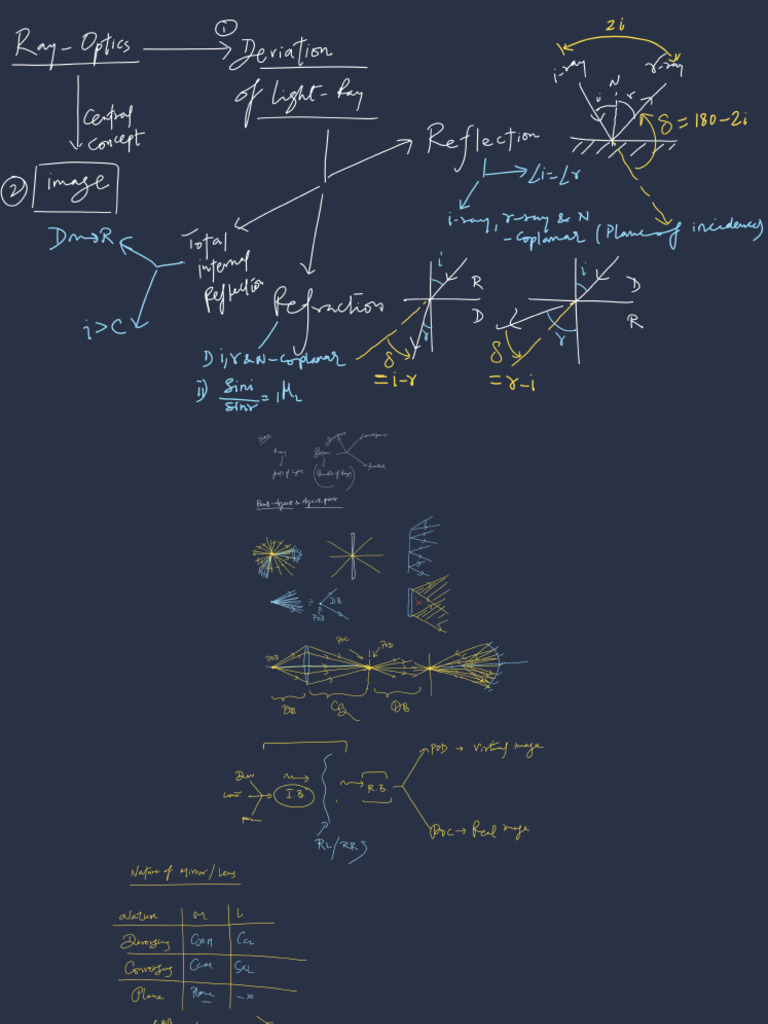 Ray-Optics
① Deviation
of Light-Ray
Central
Concept
② image
Reflection
∠i=∠r
i-ray, r-ray & N
-coplanar (Plane of incidence)
2i
i-ray
N
r-ray
i
r
δ=180-2i
Total
internal
Reflection
D→R
i>C
Refraction
i) i, r & N-coplanar
ii) Sini/sinr = ₁μ₂
i
R
D
r
δ
=i-r
i
D
R
r
δ
=r-i
Ray
Beam
POD
DB
POD
POC
POD
DB
CB
DB
I.B
R.B
POD → Virtual image
POC → Real image
Nature of Mirror/Lens
Nature M L
Diverging CXM CCL
Converging CCM CXL
Plane Plane -x